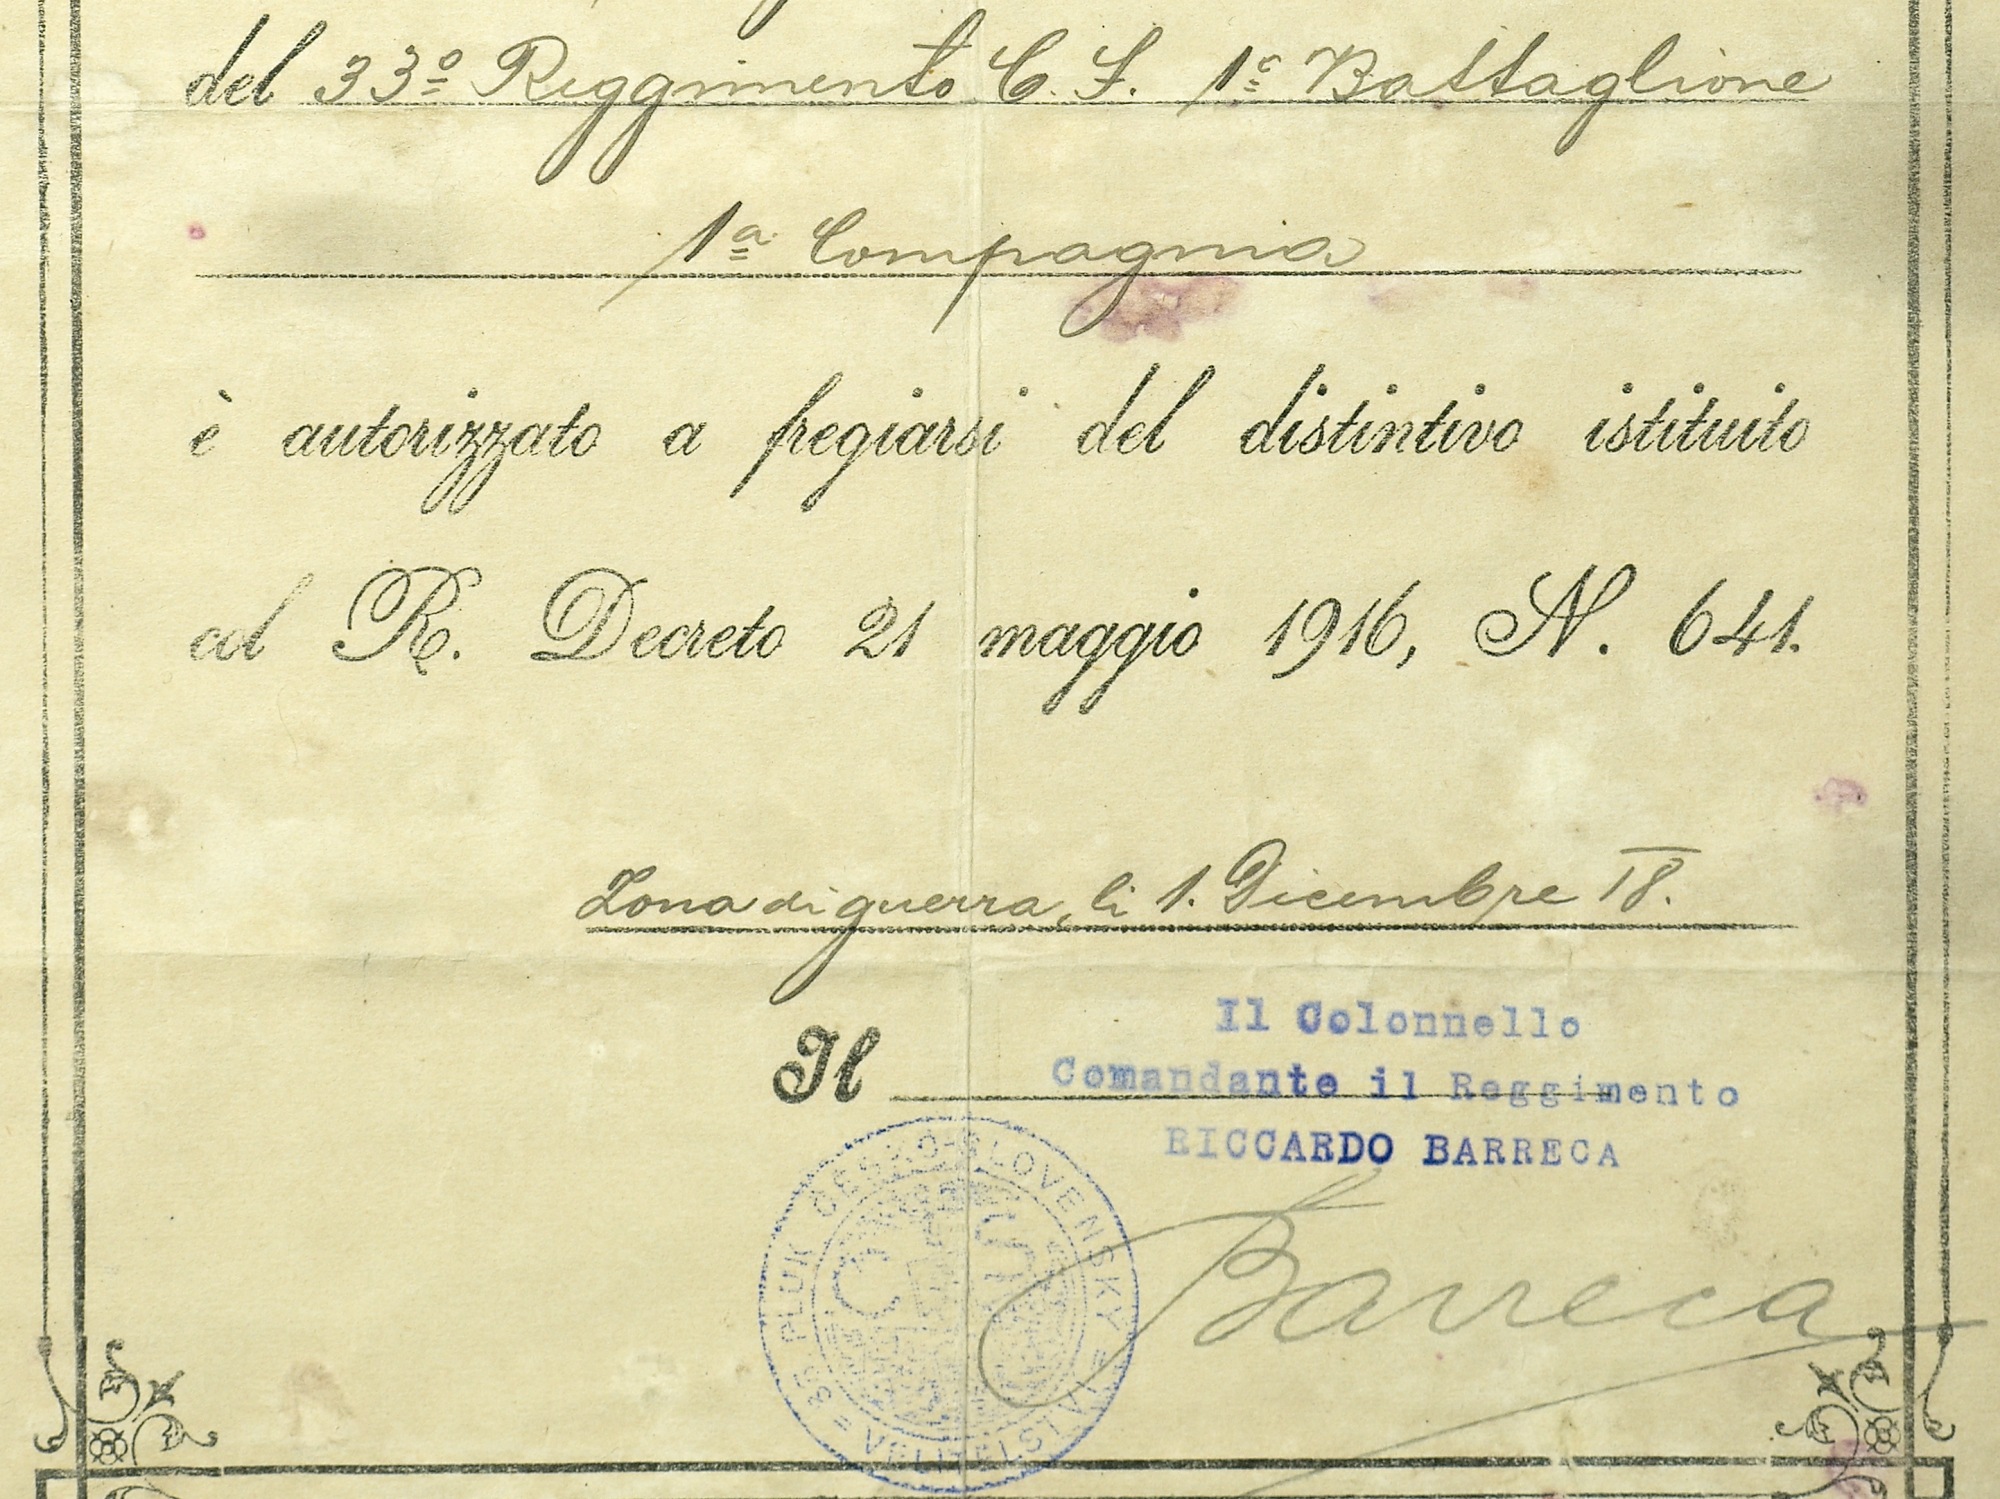 del 33º Reggimento C. F. 1º Battaglione
1ª Compagnia
è autorizzato a fregiarsi del distintivo istituito
col R. Decreto 21 maggio 1916, N. 641.
Zona di guerra, li 1. Dicembre 18.
Il Colonnello
Il
Comandante il Reggimento
RICCARDO BARRECA
Barreca
PLUK ČESKO-SLOVENSKÝ = VELITELSTVÍ